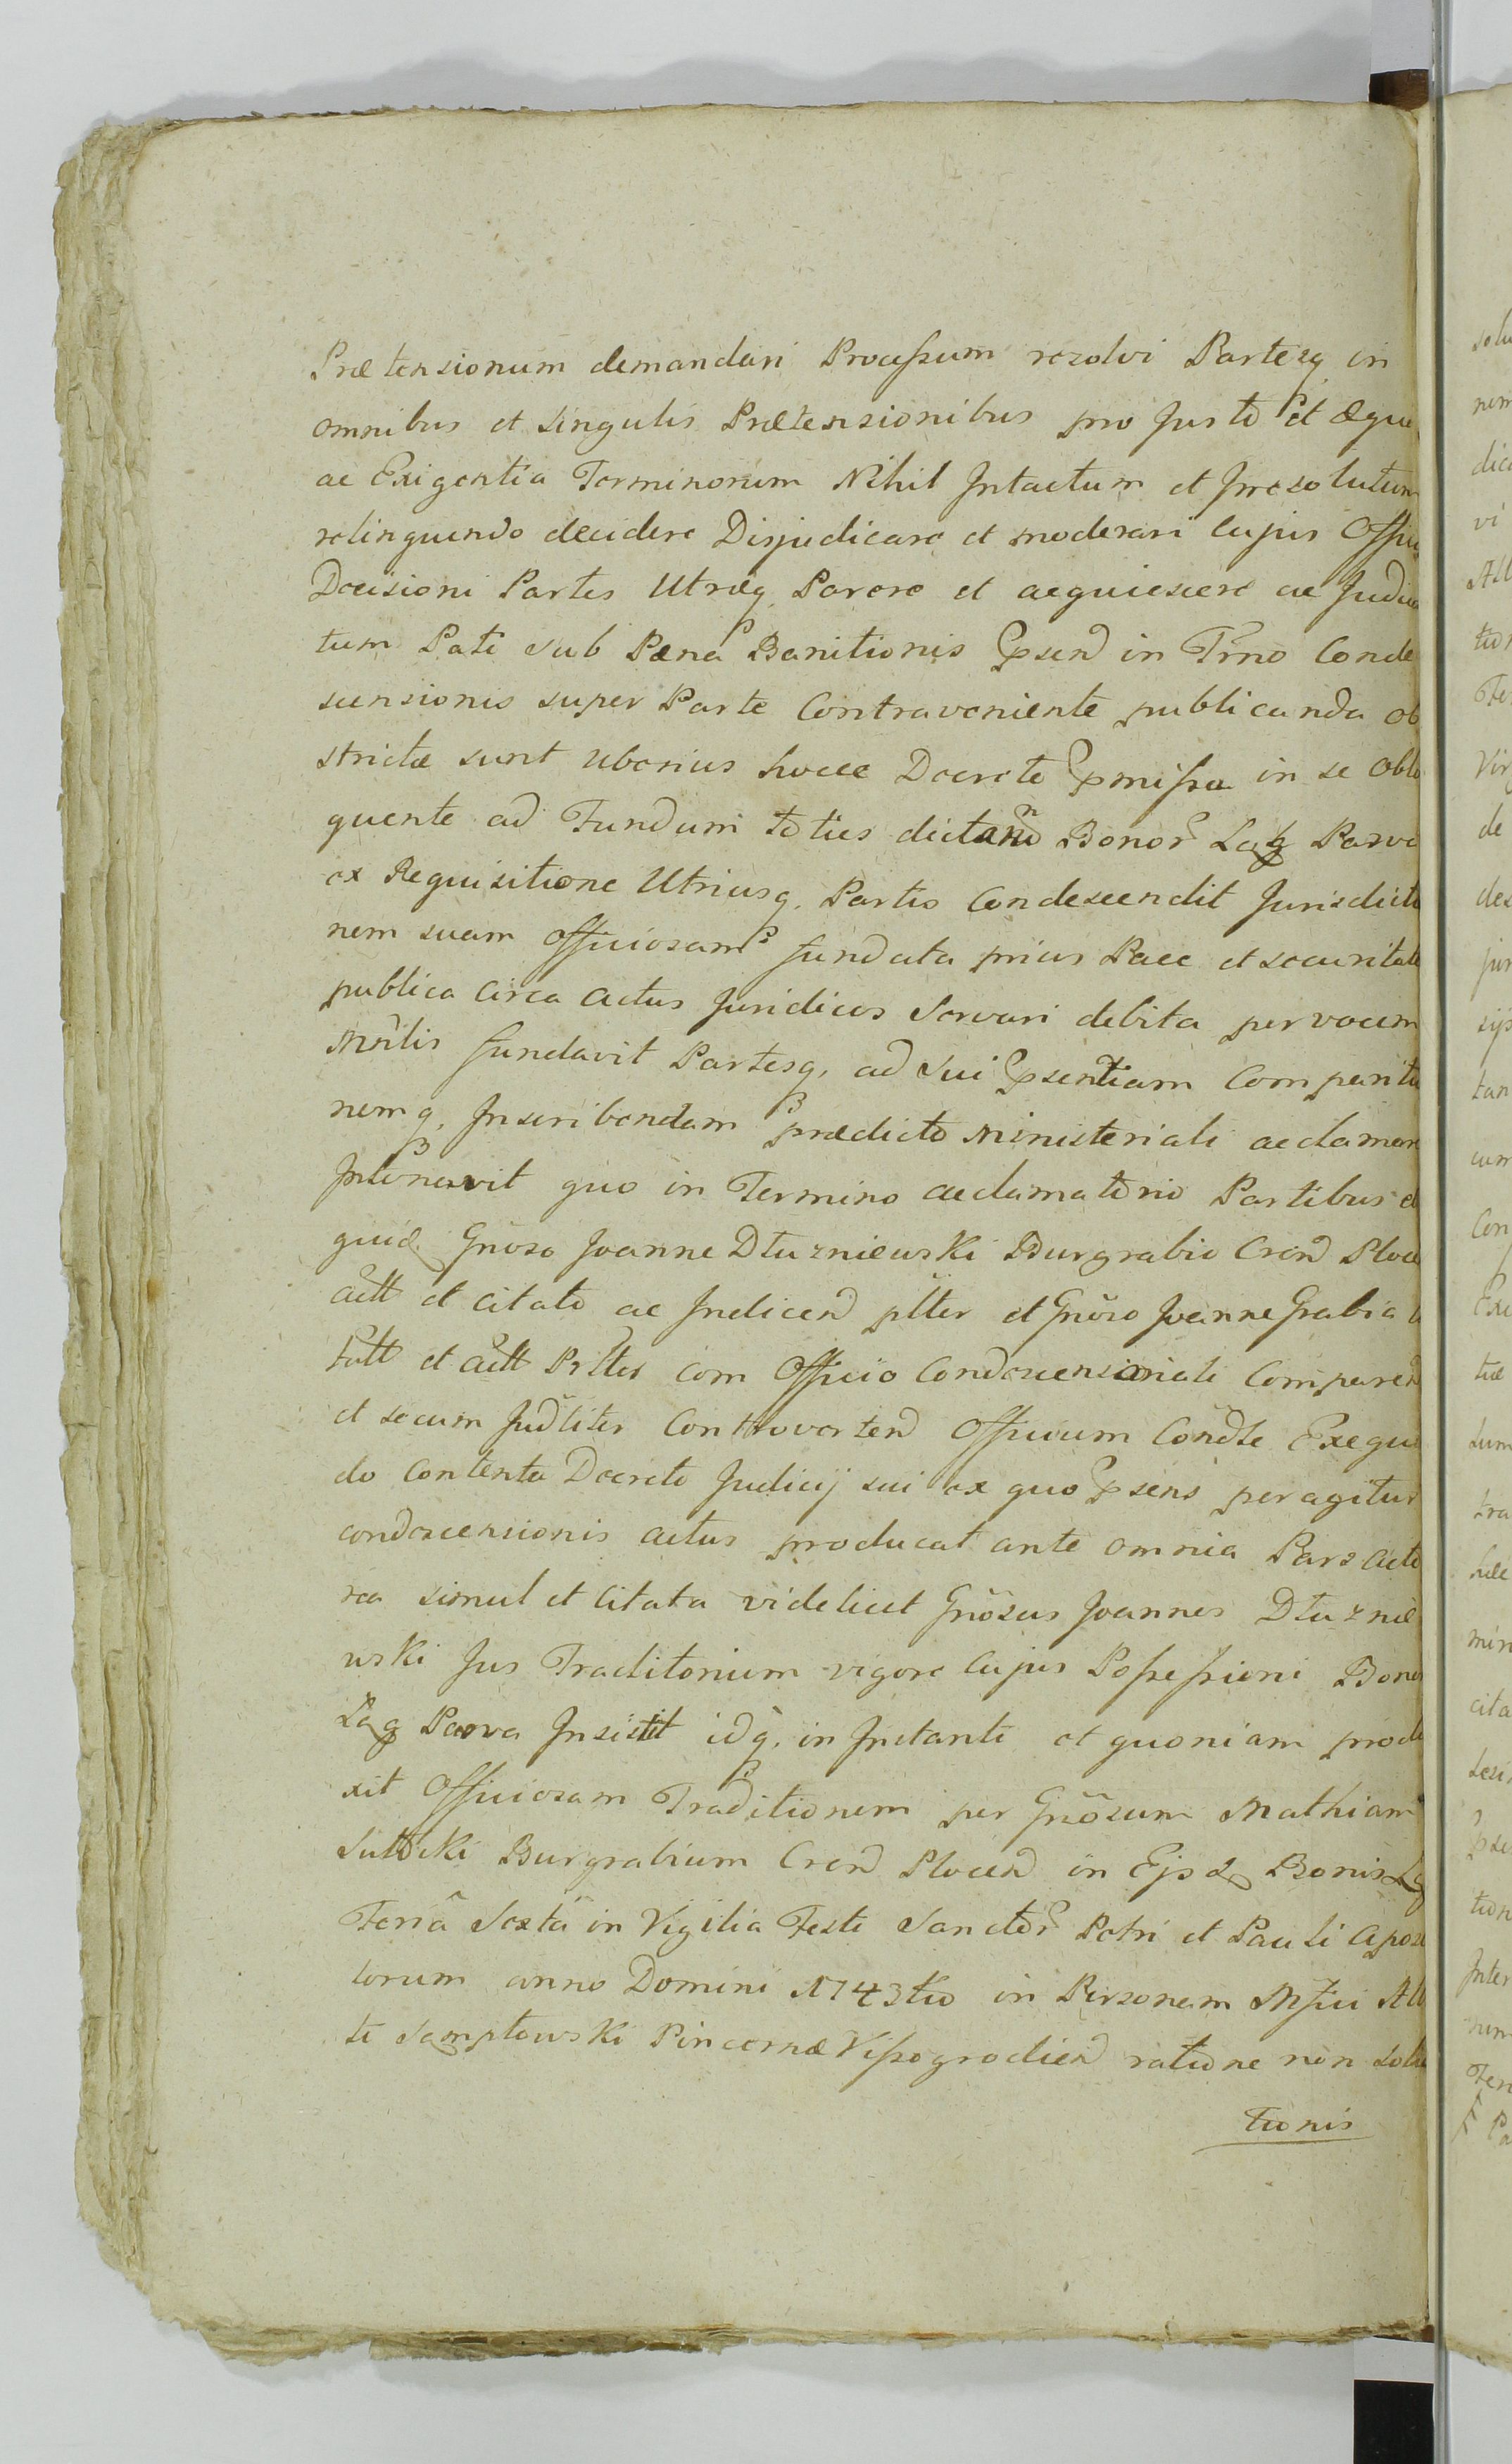 Prætensionum demandari Processum rezolvi Partesq. in
omnibus et singulis Prætensionibus pro Justo et Æquo
ac Exigentia Terminorum Nihil Intactum et Irrezolutum
relinquendo decidere Disjudicare et moderari cujus Offici
Decisioni Partes Utræq. Parere et acquiescere ac Judica
tum Pati sub Pæna Banitionis Ppsend in Trno Conde
scensionis super Parte Contraveniente publicanda ob
strictæ sunt uberius hocce Decreto Ppmissa in se oblo
quente ad Fundum toties dictand Bonor Łąg Parva
ex Requisitione Utriusq. Partis Condescendit Jurisdictio
nem suam officiosamq. fundata prius Pace et securitate
publica circa actus Juridicos Servari debita per vocem
Mrilis fundavit Partesq. ad sui Ppsentiam Compariti
nemq. Inscribendam prædicto Ministeriali acclamare
Intonavit quo in Termino acclamatorio Partibus
quid Gnoso Joanne Dłuzniewski Burgrabio Cren Ploce
actt et citato ac Indicen pltter et Gnoso Joanne Grabia
Citt et actt Pltter com Officio Condescensionali Comparen
et secum Judliter Controverten Officium Condle Exequ
do Contenta Decreto Judicij sui ex quo Ppsens peragitur
condescensionis actus producat ante omnia Pars acto
rea simul et Citata videlicet Gnosus Joannes Dłuznie
wski Jus Traditorium vigore cujus Possessioni Bonor
Łąg Parva Insistit idq. in Instanti et quoniam produ
xit Officiosam Traditionem per Gnosum Mathiam
Sułocki Burgrabium Cren Plocen in Ejsd Bonis Łą
Feria Sexta in Vigilia Festi Sanctor Petri et Pauli Apos
torum anno Domini 1743tio in Personam Mfici Al
ti Samptowski Pincernæ Vissogrodien ratione non solu
tionis